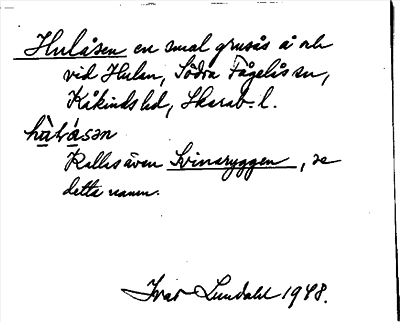 Hulåsen en smal grusås å ... 
vid Hulan, Södra Fågelås sn,
Kåkinds hd, Skarab. l.
hùlåsən
Kallas även Svinaryggen, se
detta namn.
Ivar Lundahl 1948.